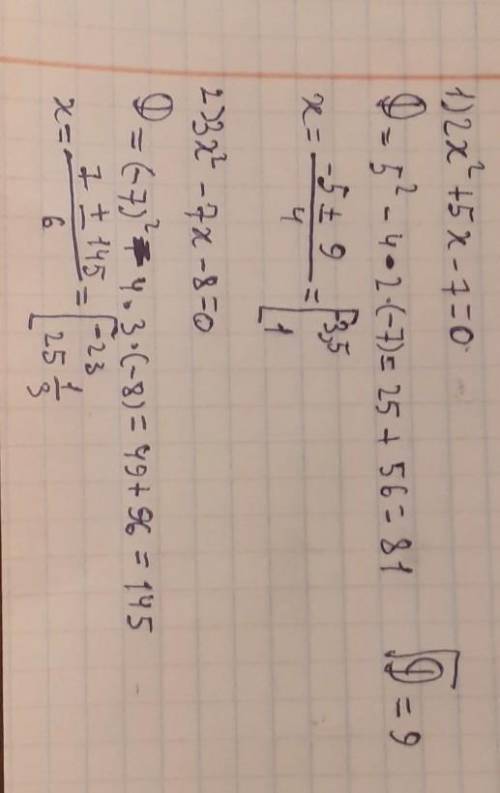 1) 2x² + 5x - 7 = 0
D = 5² - 4 · 2 · (-7) = 25 + 56 = 81 √D = 9
x = (-5 ± 9)/4 = [-3,5 1
2) 3x² - 7x - 8 = 0
D = (-7)² - 4 · 3 · (-8) = 49 + 96 = 145
x = (7 ± 145)/6 = [-23 25 1/3